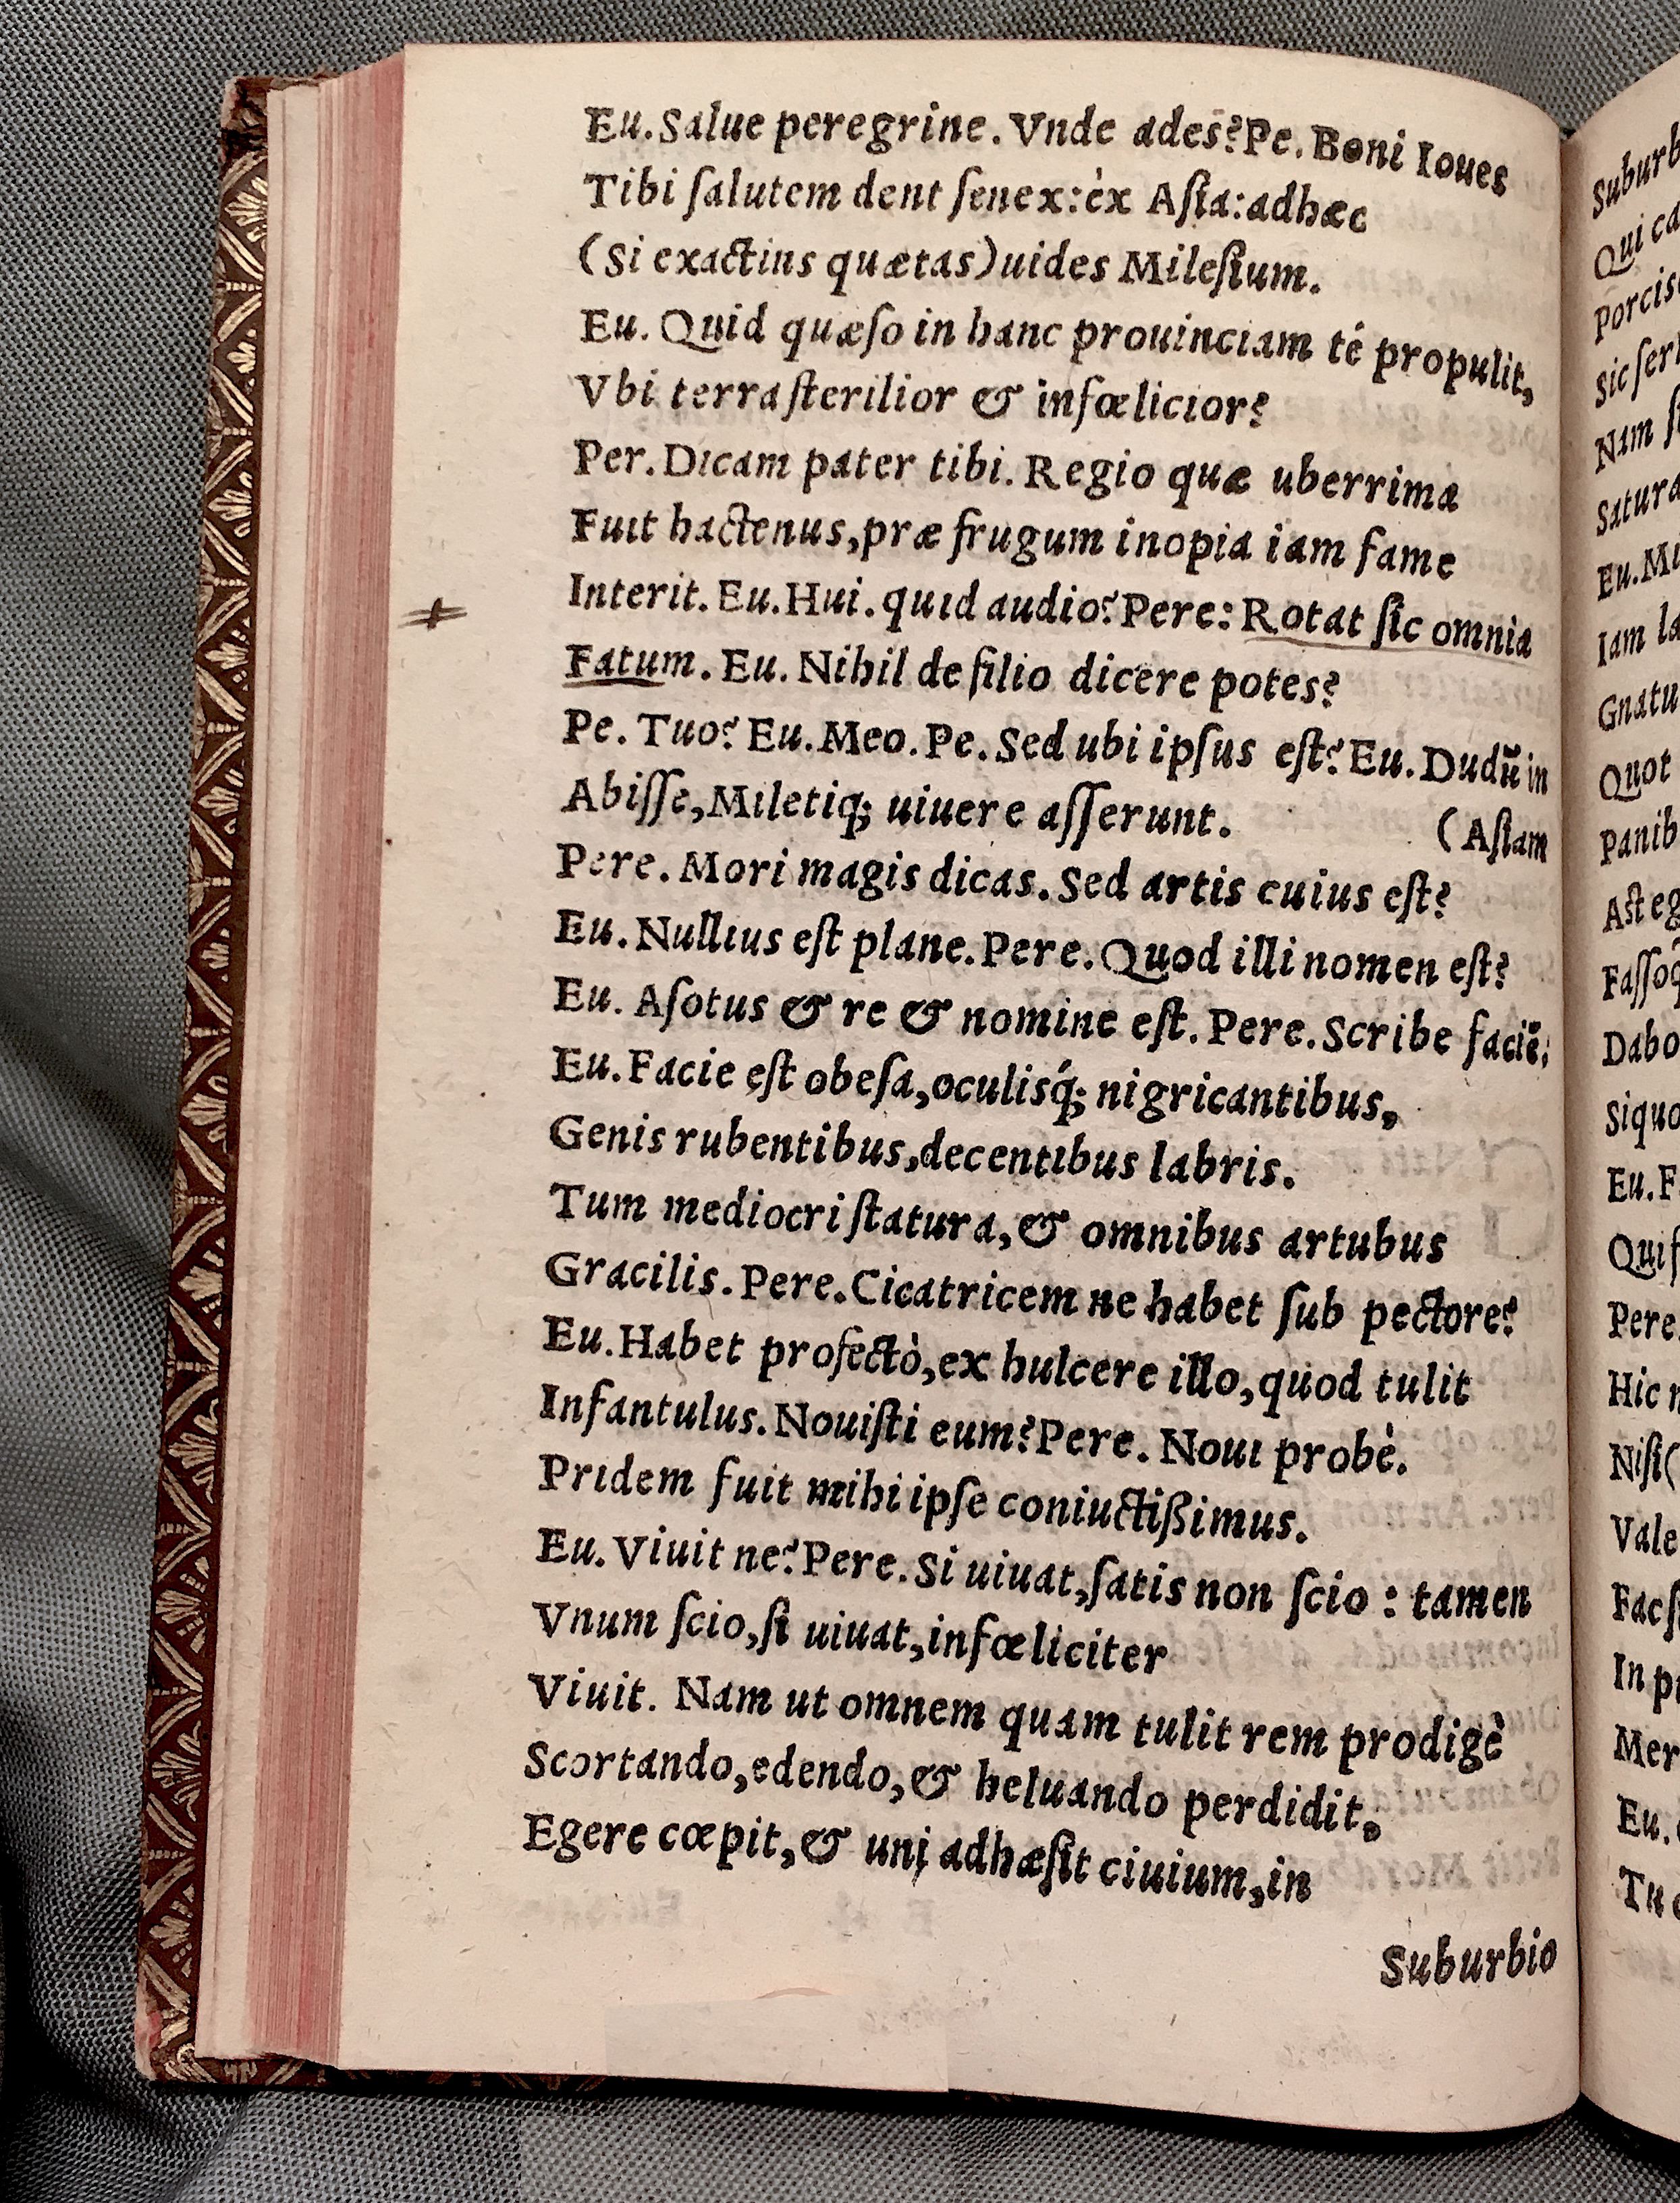 Eu. Salue peregrine. Vnde ades? Pe. Boni Ioues
Tibi ſalutem dent ſenex: èx Aſia: adhæc
(Si exactius quætas) uides Mileſium.
Eu. Quid quæſo in hanc prouinciam té propulit,
Vbi terra ſterilior & infœlicior?
Per. Dicam pater tibi. Regio quæ uberrima
Fuit hactenus, præ frugum inopia iam fame
Interit. Eu. Hui. quid audio? Pere: Rotat ſic omnia
Fatum. Eu. Nihil de filio dicere potes?
Pe. Tuo? Eu. Meo. Pe. Sed ubi ipſus eſt? Eu. Dudū in
Abiſſe, Miletiq; uiuere aſſerunt. (Aſiam
Pere. Mori magis dicas. Sed artis cuius eſt?
Eu. Nullius eſt plane. Pere. Quod illi nomen eſt?
Eu. Aſotus & re & nomine eſt. Pere. Scribe faciē.
Eu. Facie eſt obeſa, oculisq́; nigricantibus,
Genis rubentibus, decentibus labris.
Tum mediocri ſtatura, & omnibus artubus
Gracilis. Pere. Cicatricem ne habet ſub pectore?
Eu. Habet profectò, ex hulcere illo, quod tulit
Infantulus. Nouiſti eum? Pere. Noui probè.
Pridem fuit mihi ipſe coniuctißimus.
Eu. Viuit ne? Pere. Si uiuat, ſatis non ſcio: tamen
Vnum ſcio, ſi uiuat, infœliciter
Viuit. Nam ut omnem quam tulit rem prodigè
Scortando, edendo, & heluando perdidit.
Egere cœpit, & uni adhæſit ciuium, in
Suburbio
Suburb
Qui ca
Porcis
Sic ſer
Nam ſ
Satura
Eu. Mi
Iam la
Gnatu
Quot
Panib
Aſt eg
Faſſoq
Dabo
Siquo
Eu. F
Qui ſ
Pere
Hic
Niſi (
Vale
Fac ſ
In p
Mer
Eu.
Tu